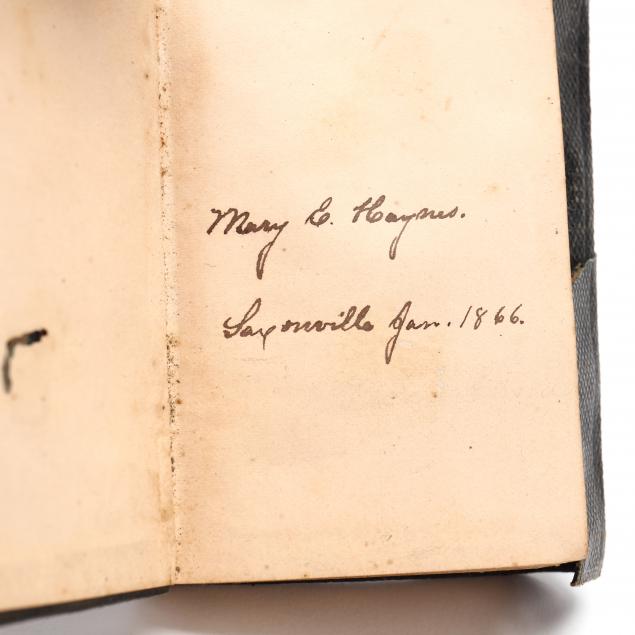 Mary E. Haynes.
Saxonville Jan. 1866.